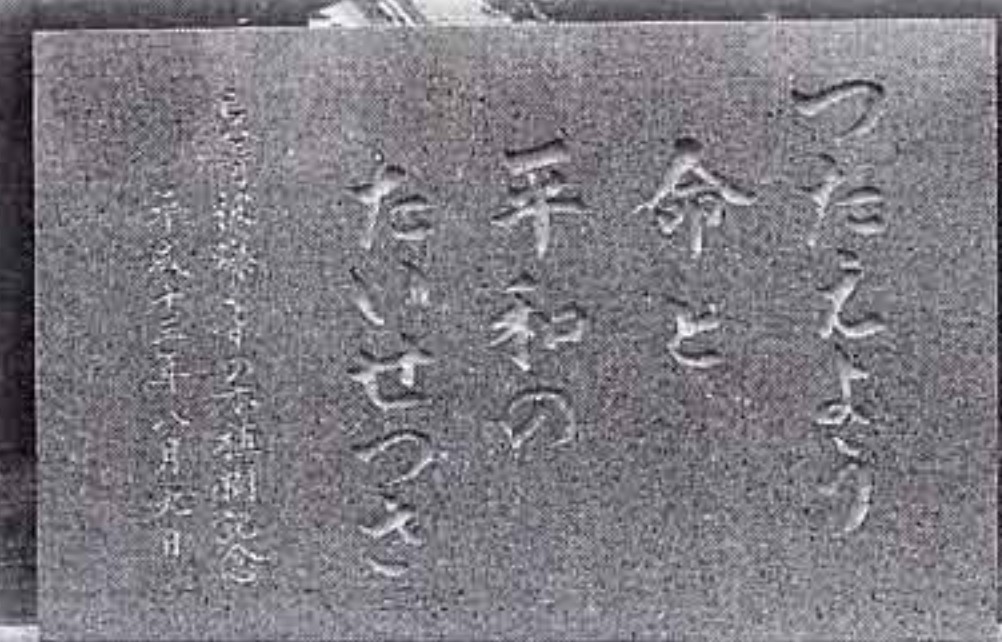 つたえよう
命と
平和の
たいせつさ
植樹記念
平成十三年八月九日